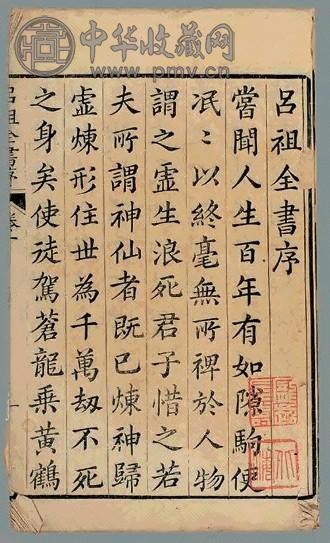 中华收藏网
www.pmyv.cn
呂祖全書序
嘗聞人生百年有如隙駒使
泯〻以終毫無所裨於人物
謂之虛生浪死君子惜之若
夫所謂神仙者既已煉神歸
虛煉形住世為千萬刼不死
之身矣使徒駕蒼龍乗黄鶴